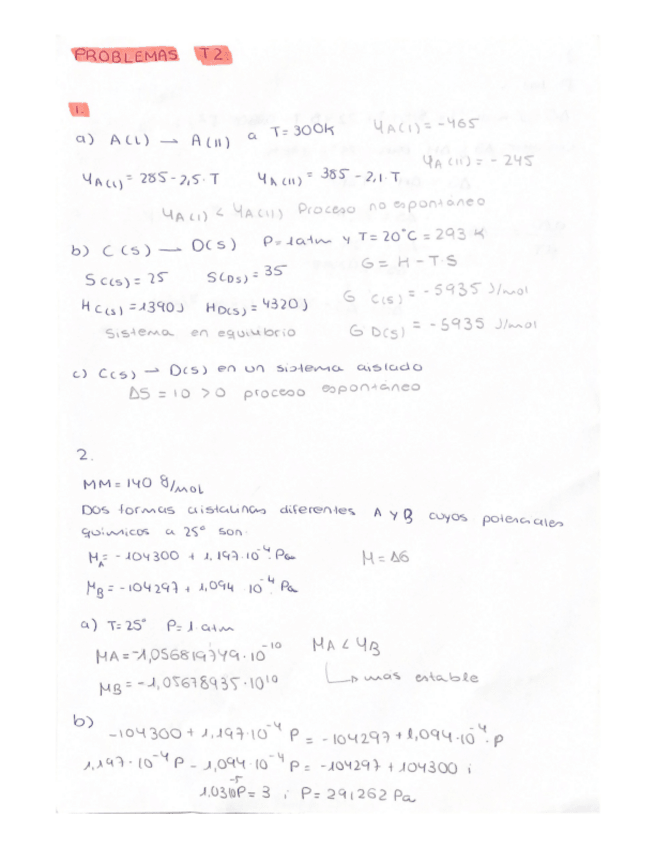 PROBLEMAS T2:
1.
a) A(l) → A(ll) a T=300K μA(l) = -465
μA(ll) = -245
μA(l) = 285-2,5·T μA(ll) = 385-2,1·T
μA(l) < μA(ll) Proceso no espontáneo
b) C(s) → D(s) P=1atm y T=20°C = 293 K
G = H - T·S
SC(s) = 25 S(Ds) = 35
HC(s) = 1390J HD(s) = 4320J G C(s) = -5935 J/mol
Sistema en equilibrio G D(s) = -5935 J/mol
c) C(s) → D(s) en un sistema aislado
ΔS = 10 > 0 proceso espontáneo
2.
MM = 140 g/mol
Dos formas cristalinas diferentes A y B cuyos potenciales
químicos a 25° son:
MA = -104300 + 1,197·10⁻⁴·Pa M = ΔG
MB = -104297 + 1,094·10⁻⁴·Pa
a) T=25° P=1 atm
MA = -1,056819749·10⁻¹⁰ MA < μB
MB = -1,05678935·10¹⁰ ↳ más estable
b) -104300 + 1,197·10⁻⁴ P = -104297 + 1,094·10⁻⁴·P
1,197·10⁻⁴P - 1,094·10⁻⁴P = -104297 + 104300 ;
1,0310⁻⁵P = 3 ; P = 291262 Pa